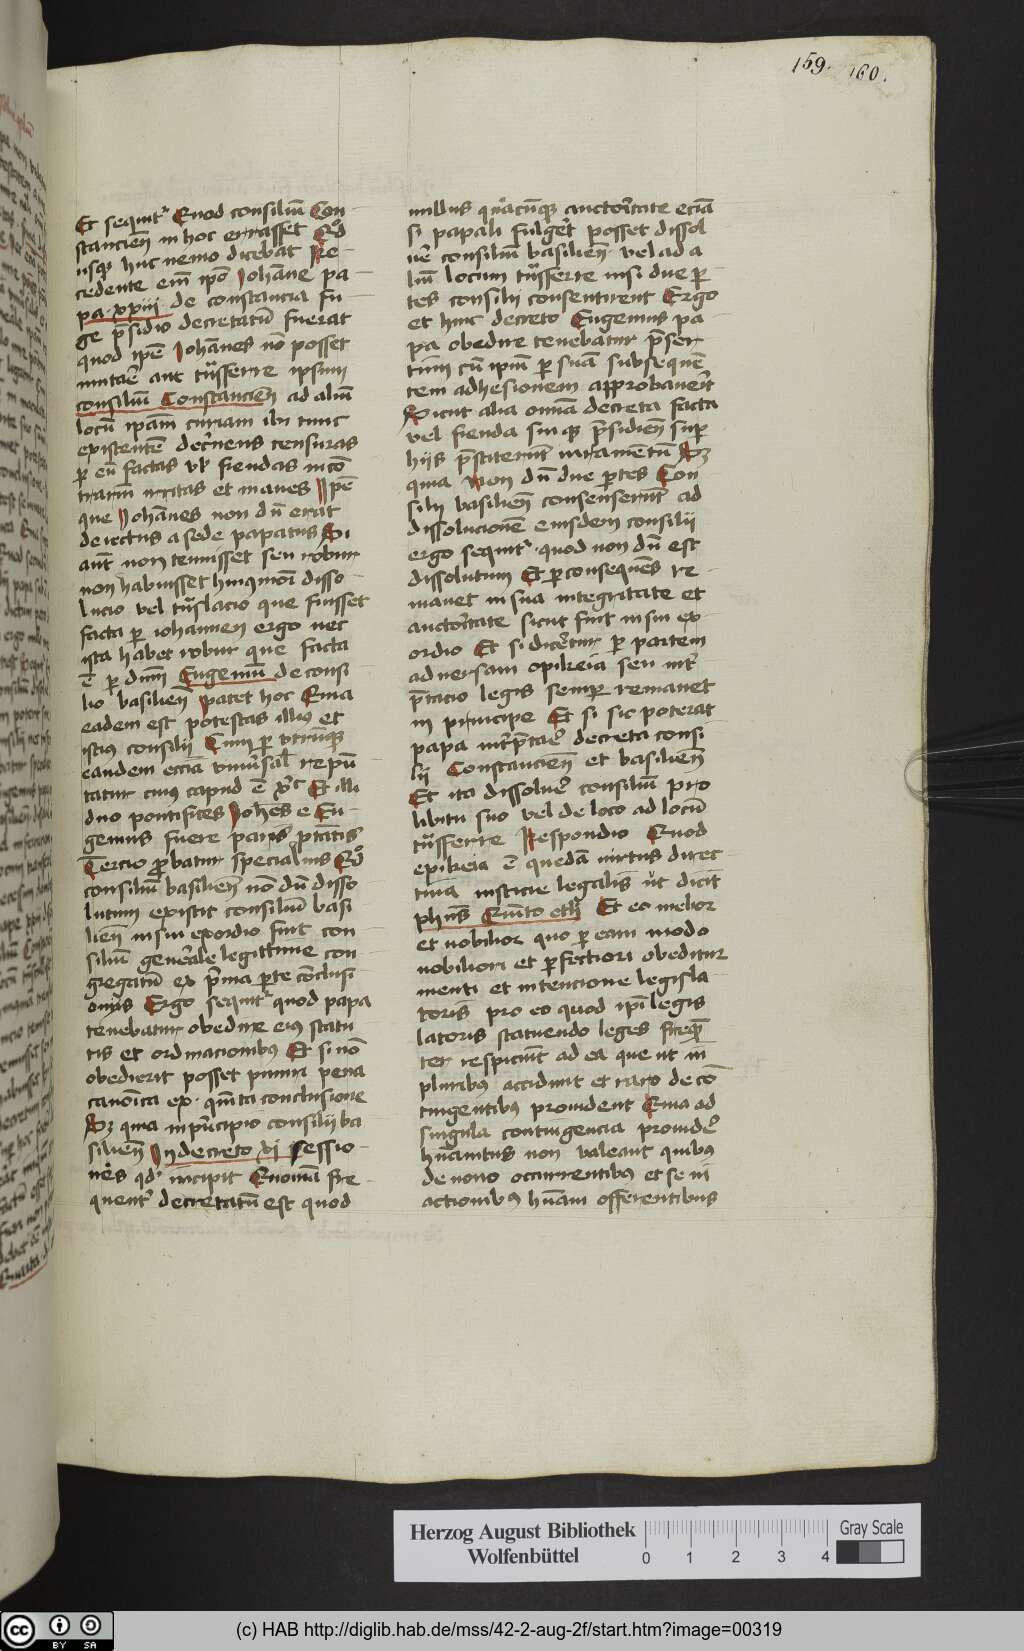 159. 160.
Et sequitr Quod consiliū Con-
stancieñ in hoc errasset Qđ
usqȝ huc nemo dicebat Re-
cedente em̄ ip̄o Johāne pa
pa xxiii de constancia fu-
ge p̄sidio decretatū fuerat
quod ip̄e Johānes nō posset
mutae aut tn̄sferre ipsum
consiliū Constancieñ ad aliū
locū ip̄am curiam ibi tunc
existentē decernens censuras
ꝑ eū factas vl fiendas in cō
trariū irritas et inanes Ip̄e
que Johānes non dū erat
deiectus a sede papatus Si
aūt non tenuisset seu robur
non habuisset huiꝰmōi disso-
lucio vel tn̄slacio que fuisset
facta ꝑ iohannem ergo nec
ista habet robur que facta
ē ꝑ dn̄m Eugeniū de consi
lio basilieñ patet hoc Quia
eadem est potestas illiꝰ et
istiꝰ consilii Cum ꝑ utrūqȝ
eandem eccīa vniūsal repn̄
tatur cuiꝰ capud ē xp̄c Et illi
duo pontifices Johēs e Eu-
genius fuere paris ptātis
Tercio ꝓbatur specialius Qđ
consiliū basilieñ nō dū disso
lutum existit consiliū basi
lieñ in sui exordio fuit con
siliū genērale legittime con
gregatū ex p̄ma ꝑte cōclusi
onis Ergo sequitr quod papa
tenebatur obedire eiꝰ statu
tis et ordinacionibꝰ Et si nō
obedierit posset puniri pena
canōica ex quīta conclusione
Sȝ quia in p̄ncipio consilii ba
silieñ In decreto xi sessio-
nes qđ incipit Quoniā fre-
quent decretatū est quod
nullus quacūqȝ auctoritate eciā
si papali fulgeret posset dissol
ue consiliū basilieñ vel ad a
liū locum tn̄sferre nisi due ꝑ
tes consilii consentirent Ergo
et huic decreto Eugenius pa-
pa obedire tenebatur p̄ser
tim cū ip̄m ꝑ suā subsequē
tem adhesionem approbauerit
Sicut alia omīa decreta facta
vel fienda suiqȝ p̄sidieñ suꝑ
hiis p̄stiterunt iuramentū Sȝ
quia Non dū due ꝑtes Con
silii basilieñ consenserunt ad
dissolucionē eiusdem consilii
ergo sequitr quod non dū est
dissolutum Et ꝑ consequēs re
manet in sua integritate et
auctoritate sicut fuit in sui ex
ordio Et si diceretur ꝑ partem
aduersam epikeia seu int
p̄tacio legis semꝑ remanet
in principe Et si sic poterat
papa int̄p̄tae decreta consi
lii Constancieñ et basilieñ
Et ita dissolue consiliū pro
libitu suo vel de loco ad locū
tn̄sferre Respondio Quod
epikeia ē quedā virtus direc-
tiua iusticie legalis ut dicit
ph̄us Quīto eth Et eo melior
et nobilior quo ꝑ eam modo
nobiliori et ꝑfectiori obeditur
menti et intencione legisla
toris pro eo quod ip̄i legis
latoris statuendo leges freqn̄
ter respiciūt ad ea que ut in
pluribꝰ accidunt et raro de cō
tingentibꝰ prouident Quia ad
singula contingencia prouide
hūanitus non valeant quibꝰ
de nouo occurrentibꝰ et se in
actionibꝰ hūam offerentibus
Herzog August Bibliothek
Wolfenbüttel
0 1 2 3 4
Gray Scale
cc BY SA
(c) HAB http://diglib.hab.de/mss/42-2-aug-2f/start.htm?image=00319